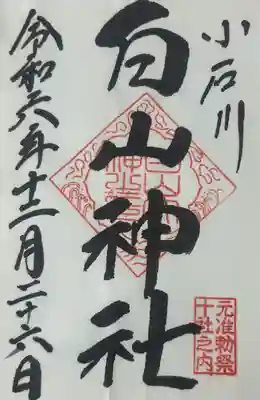 小石川
白山神社
元准勅祭
十社之内
令和六年十二月二十六日